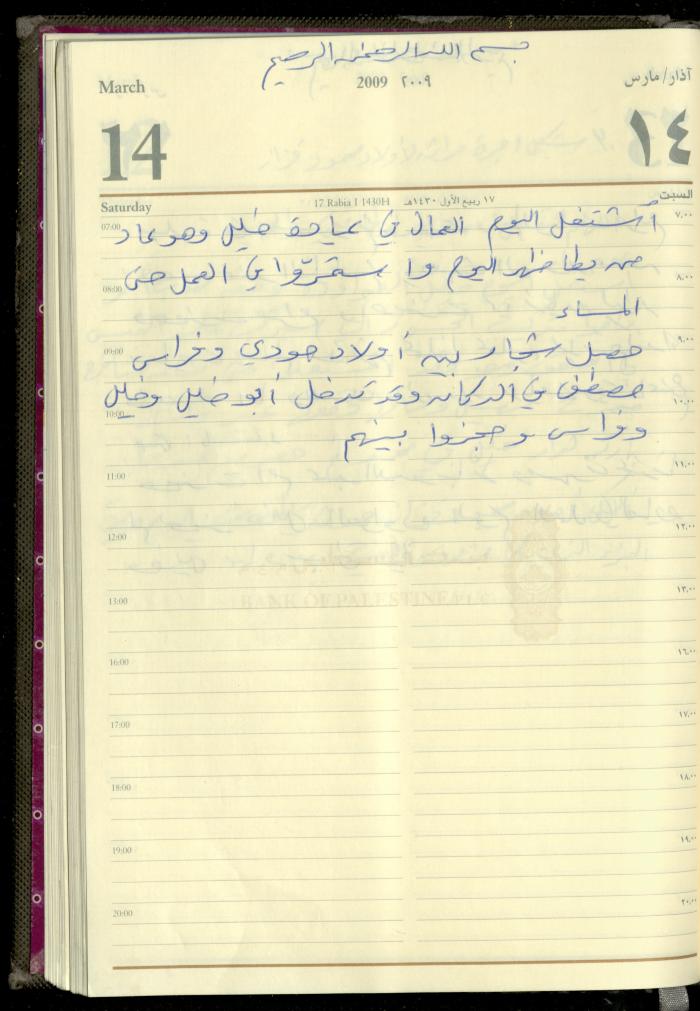 بسم الله الرحمن الرحيم
March
2009 ٢٠٠٩
آذار/مارس
14
١٤
Saturday
17 Rabia I 1430H
١٧ ربيع الأول ١٤٣٠هـ
السبت
أشتغل اليوم العمال في عيادة خليل وهو عاد
07:00 ٧,٠٠
من يطا ظهر اليوم واستمرّوا في العمل حتى
08:00 ٨,٠٠
المساء
حصل شجار بين أولاد جودي وفراس
09:00 ٩,٠٠
مصطفى في الدكانه وقد تدخل أبو خليل وخليل
10:00 ١٠,٠٠
وفراس وحجزوا بينهم
11:00 ١١,٠٠
12:00 ١٢,٠٠
BANK OF PALESTINE
13:00 ١٣,٠٠
16:00 ١٦,٠٠
17:00 ١٧,٠٠
18:00 ١٨,٠٠
19:00 ١٩,٠٠
20:00 ٢٠,٠٠